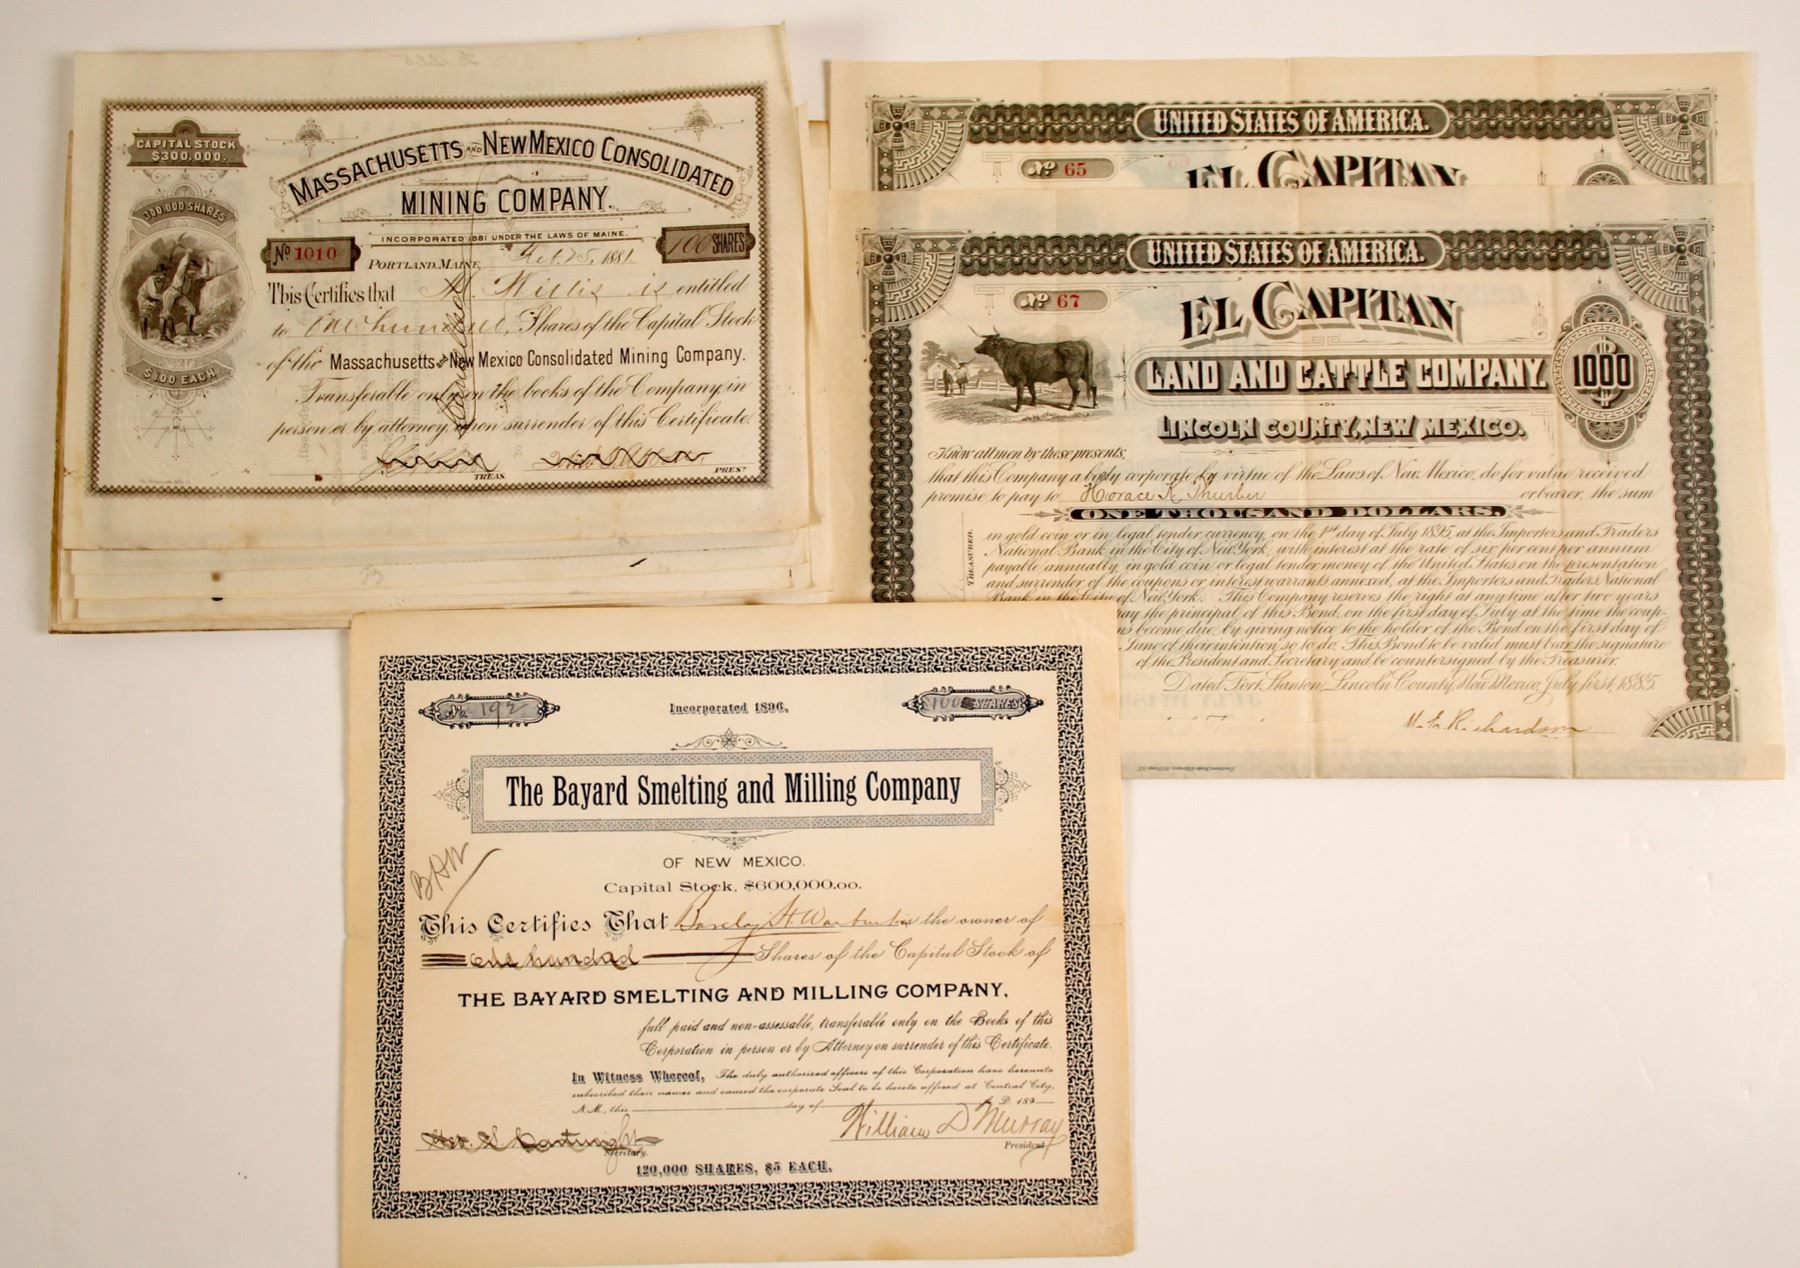 CAPITAL STOCK
$300,000.
300,000 SHARES
$1.00 EACH
MASSACHUSETTS AND NEW MEXICO CONSOLIDATED
MINING COMPANY.
INCORPORATED 1881 UNDER THE LAWS OF MAINE.
No 1010
100 SHARES
PORTLAND, MAINE, Feb 25, 1881
This Certifies that Willis is entitled
to One hundred Shares of the Capital Stock
of the Massachusetts and New Mexico Consolidated Mining Company.
Transferable only on the books of the Company, in
person or by attorney upon surrender of this Certificate.
Cancelled
TREAS.
PREST
UNITED STATES OF AMERICA.
No 65
EL CAPITAN
UNITED STATES OF AMERICA.
No 67
EL CAPITAN
LAND AND CATTLE COMPANY.
$1000
LINCOLN COUNTY, NEW MEXICO.
Know all men by these presents,
that this Company a body corporate by virtue of the Laws of New Mexico, do for value received
promise to pay to Horace K Thurber or bearer, the sum
ONE THOUSAND DOLLARS.
in gold coin or in legal tender currency, on the 1st day of July 1895, at the Importers and Traders
National Bank in the City of New York, with interest at the rate of six per cent per annum
payable annually, in gold coin or legal tender money of the United States on the presentation
and surrender of the coupons or interest warrants annexed, at the Importers and Traders National
Bank in the City of New York. This Company reserves the right at any time after two years
pay the principal of this Bond, on the first day of July at the time the coup-
ns become due, by giving notice to the holder of the Bond on the first day of
June of their intention so to do. This Bond to be valid must bear the signature
of the President and Secretary and be countersigned by the Treasurer.
Dated Fort Stanton, Lincoln County, New Mexico, July first, 1885
TREASURER.
M. E. Richardson
No. 192
Incorporated 1896.
100 SHARES
The Bayard Smelting and Milling Company
OF NEW MEXICO.
Capital Stock, $600,000.00.
BHW
This Certifies That Barclay H. Warburton is the owner of
One hundred Shares of the Capital Stock of
THE BAYARD SMELTING AND MILLING COMPANY,
full paid and non-assessable, transferable only on the Books of this
Corporation in person or by Attorney on surrender of this Certificate.
In Witness Whereof, The duly authorized officers of this Corporation have hereunto
subscribed their names and caused the corporate Seal to be hereto affixed at Central City,
N.M., this day of A. D. 189
Geo. S. Cartwright
Secretary.
William D Murray
President
120,000 SHARES, $5 EACH.